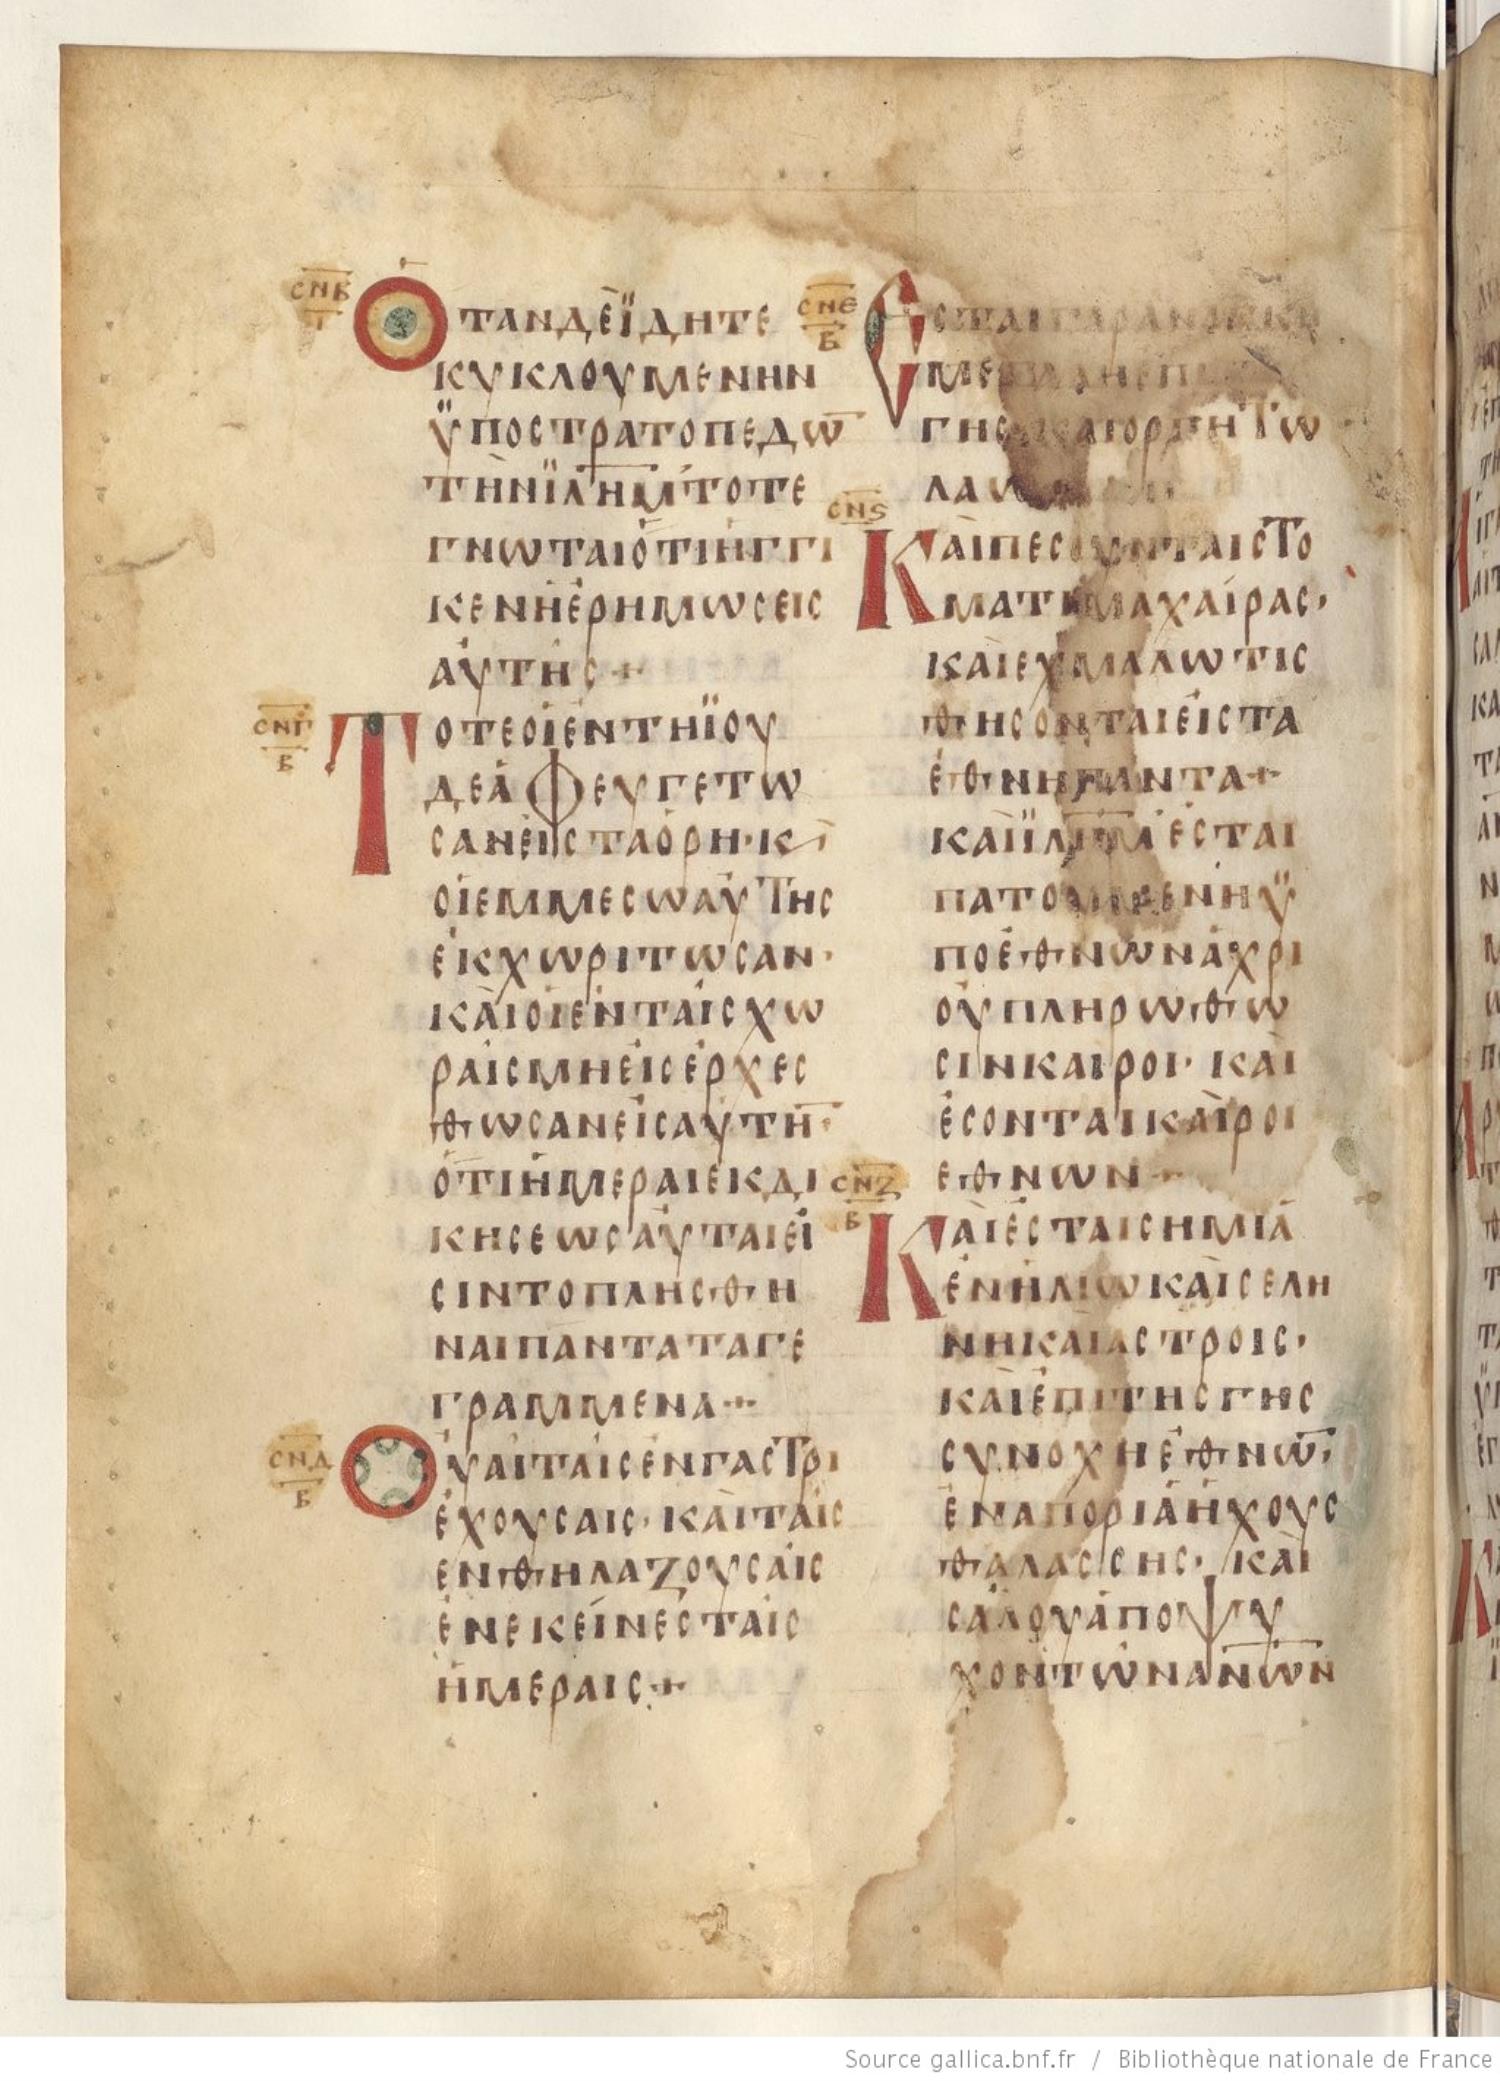 ϹΝΒ
Ι
ΟΤΑΝΔΕΪΔΗΤΕ
ΚΥΚΛΟΥΜΕΝΗΝ
ΫΠΟϹΤΡΑΤΟΠΕΔΩ̅
ΤΗΝΪΛΗΜ̅ΤΟΤΕ
ΓΝΩΤΑΙΟΤΙΗΓΓΙ
ΚΕΝΗΕΡΗΜΩϹΕΙϹ
ΑΥΤΗϹ+
ϹΝΓ
Β
ΤΟΤΕΟΙΕΝΤΗΪΟΥ
ΔΕΑΦΕΥΓΕΤΩ
ϹΑΝΕΙϹΤΑΟΡΗ·Κ,
ΟΙΕΜΜΕϹΩΑΥΤΗϹ
ΕΚΧΩΡΙΤΩϹΑΝ·
ΚΑΙΟΙΕΝΤΑΙϹΧΩ
ΡΑΙϹΜΗΕΙϹΕΡΧΕϹ
ΘΩϹΑΝΕΙϹΑΥΤΗ̅·
ΟΤΙΗΜΕΡΑΙΕΚΔΙ
ΚΗϹΕΩϹΑΥΤΑΙΕΙ
ϹΙΝΤΟΠΛΗϹΘΗ
ΝΑΙΠΑΝΤΑΤΑΓΕ
ΓΡΑΜΜΕΝΑ·+
ϹΝΔ
Β
ΟΥΑΙΤΑΙϹΕΝΓΑϹΤΡΙ
ΕΧΟΥϹΑΙϹ·ΚΑΙΤΑΙϹ
ΕΝΘΗΛΑΖΟΥϹΑΙϹ
ΕΝΕΚΕΙΝΕϹΤΑΙϹ
ΗΜΕΡΑΙϹ·+
ϹΝΕ
Β
ΕϹΤΑΙΓΑΡΑΝΑΓΚΗ
ΜΕΓΑΛΗΕΠΙ
ΓΗϹΚΑΙΟΡΓΗΤΩ
ΛΑΩ
ϹΝϚ
ΚΑΙΠΕϹΟΥΝΤΑΙϹΤΟ
ΜΑΤΙΜΑΧΑΙΡΑϹ·
ΚΑΙΕΧΜΑΛΩΤΙϹ
ΘΗϹΟΝΤΑΙΕΙϹΤΑ
ΕΘΝΗΠΑΝΤΑ·+
ΚΑΙΪΛΗΜ̅ΕϹΤΑΙ
ΠΑΤΟΥΜΕΝΗΫ
ΠΟΕΘΝΩΝΑΧΡΙ
ΟΥΠΛΗΡΩΘΩ
ϹΙΝΚΑΙΡΟΙ·ΚΑΙ
ΕϹΟΝΤΑΙΚΑΙΡΟΙ
ΕΘΝΩΝ·+
ϹΝΖ
Β
ΚΑΙΕϹΤΑΙϹΗΜΙΑ
ΕΝΗΛΙΩΚΑΙϹΕΛΗ
ΝΗΚΑΙΑϹΤΡΟΙϹ·
ΚΑΙΕΠΙΤΗϹΓΗϹ
ϹΥΝΟΧΗΕΘΝΩ̅·
ΕΝΑΠΟΡΙΑΗΧΟΥϹ
ΘΑΛΑϹϹΗϹ·ΚΑΙ
ϹΑΛΟΥΑΠΟΨΥ
ΧΟΝΤΩΝΑΝ̅Ω̅Ν
Source gallica.bnf.fr / Bibliothèque nationale de France